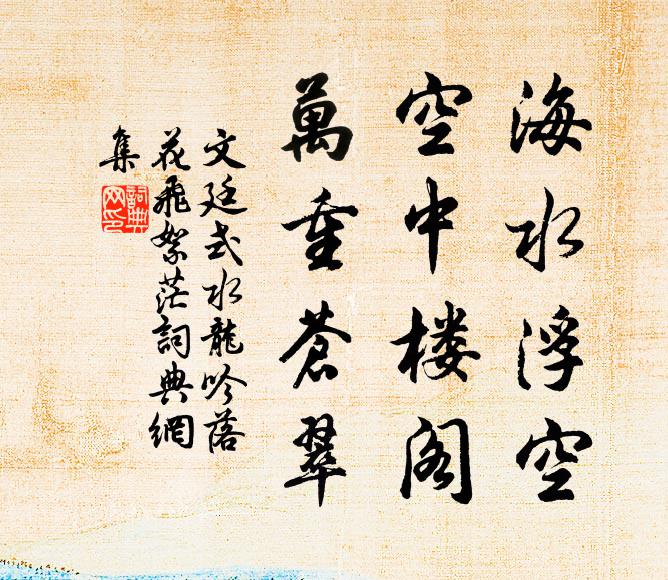 海水浮空
空中楼阁
萬重蒼翠
文廷式水龍吟落
花飛絮茫詞典網
集
詞典
网印